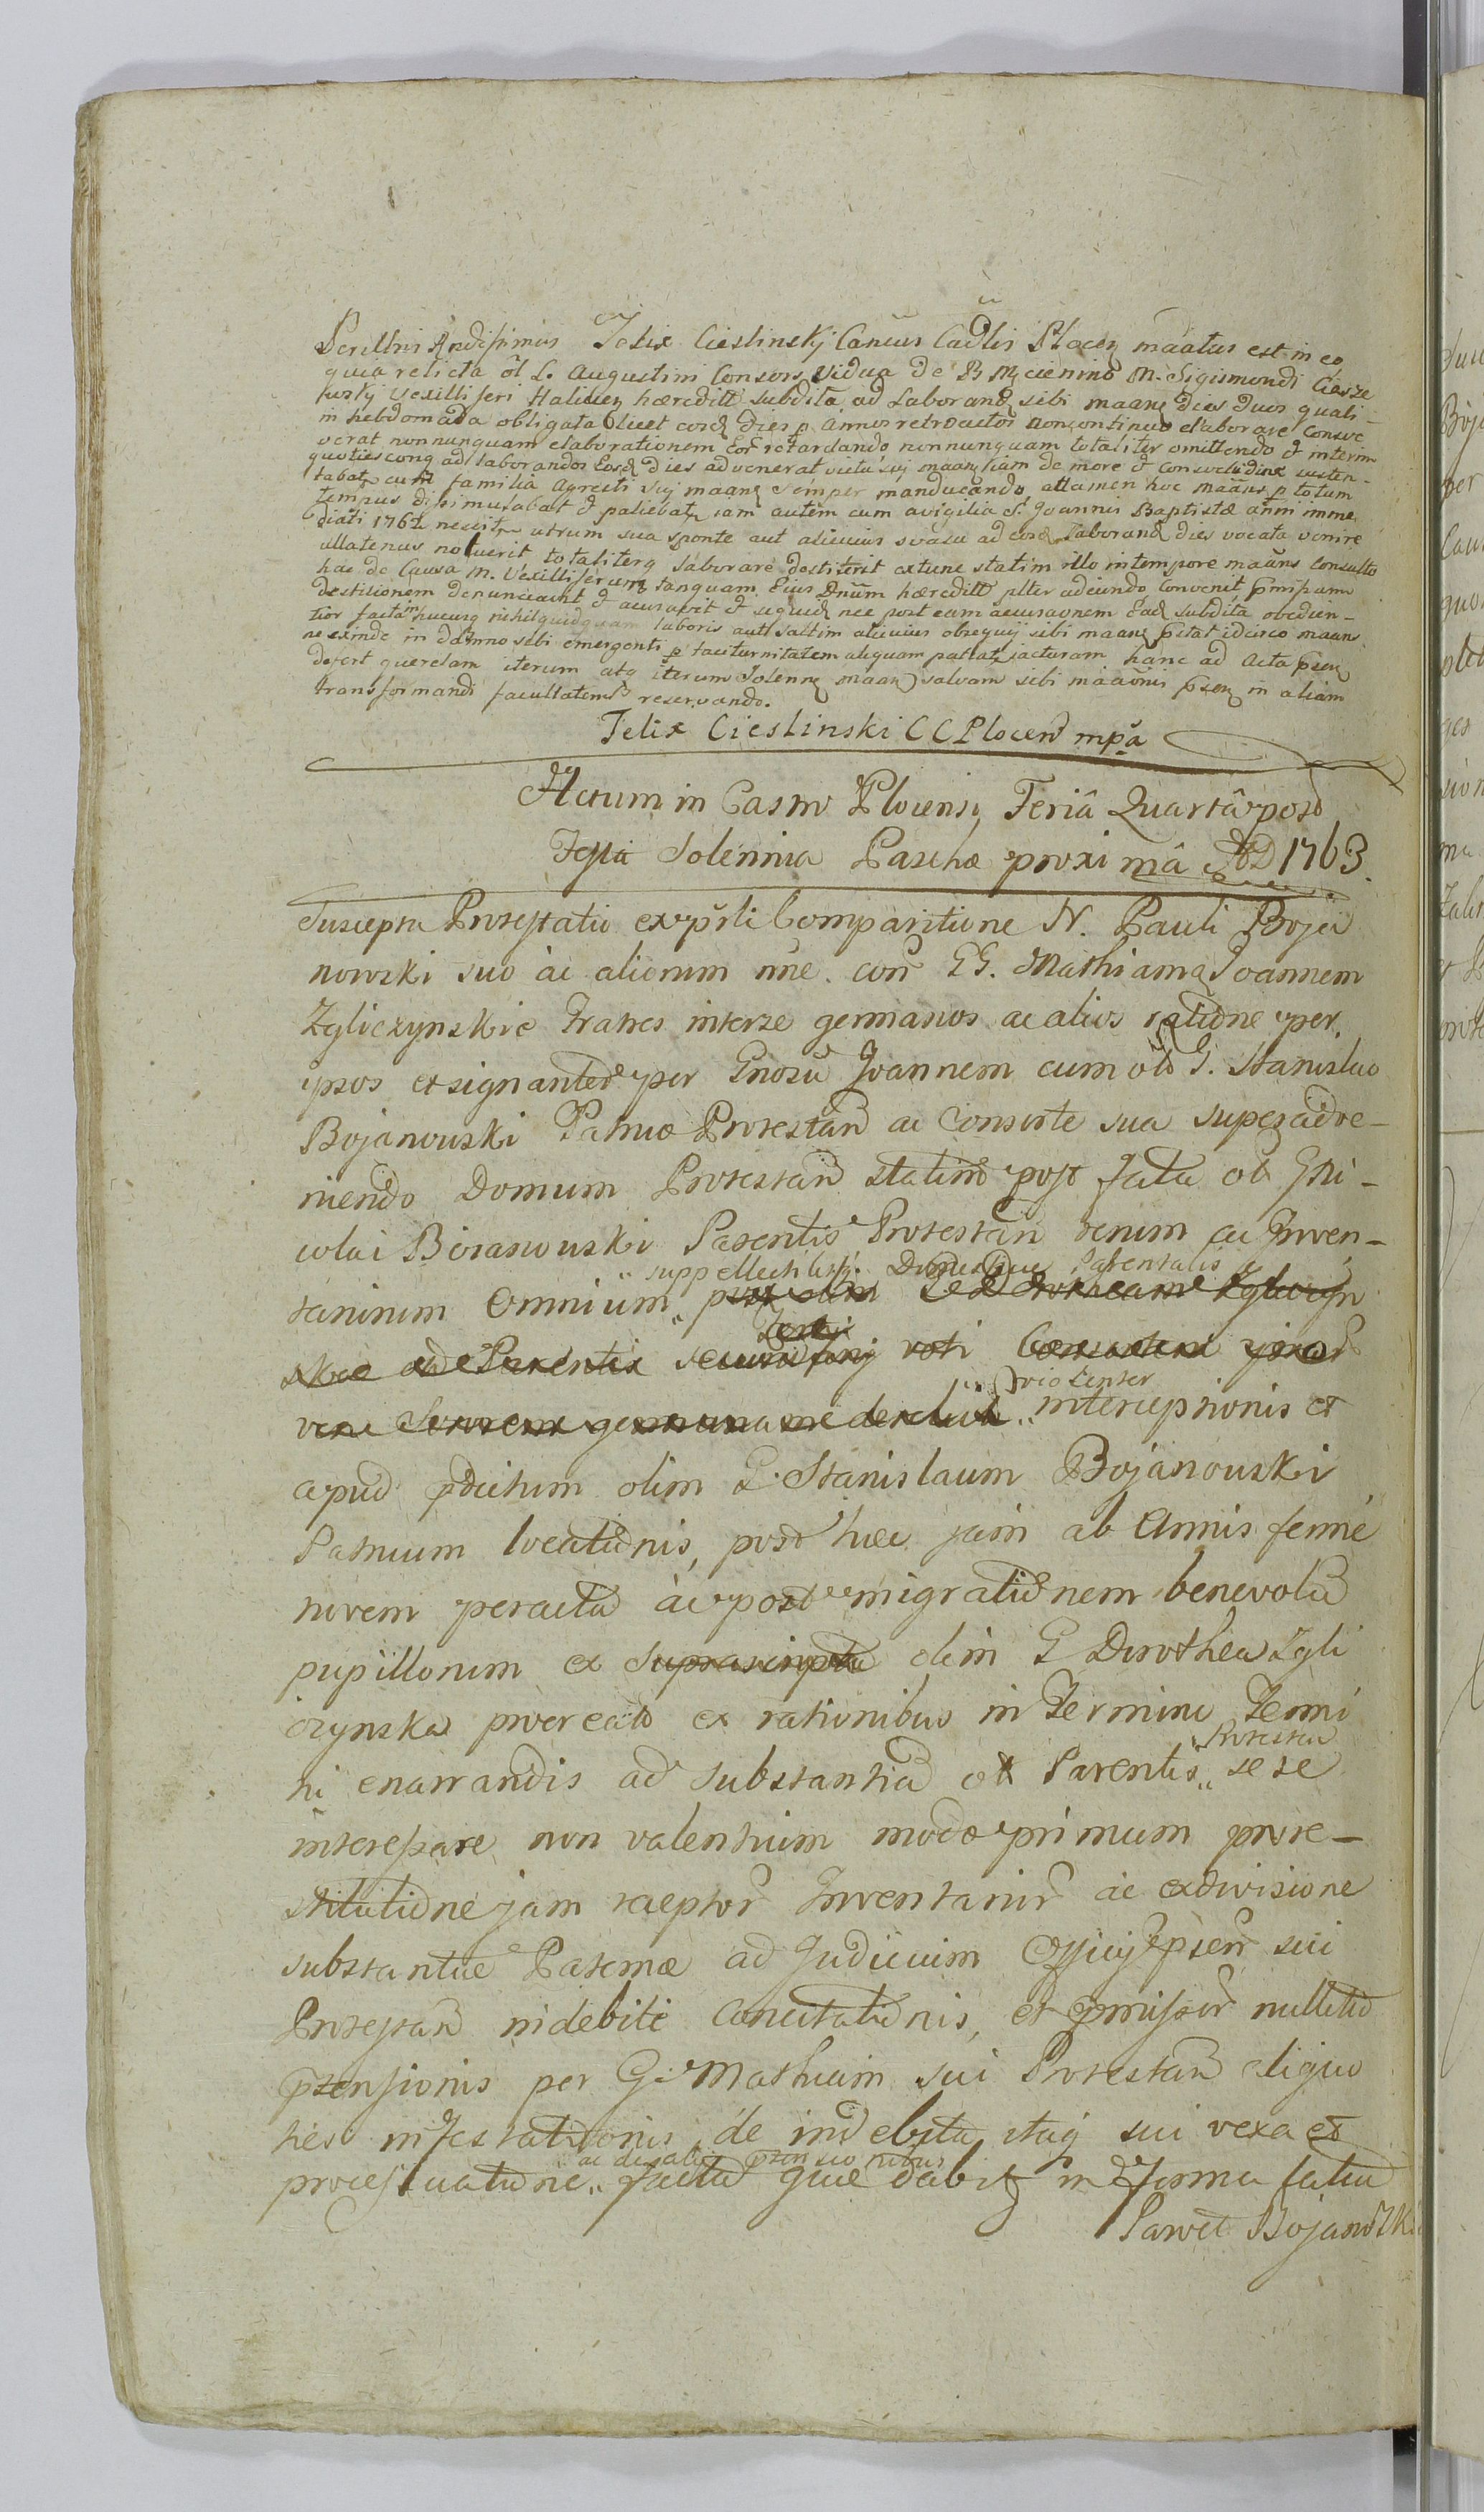 Perillris Rndissimus Felix Cieslinsky Cancus Cadlis Plocen maatus est in eo
quia relicta ol L. Augustini Consors Vidua de B M. Sigismondi Ciesze
kursky Vexilliferi Halicien hæreditt subdita ad Laborand sibi maang dies duos quali-
in hebdomada obligata licet eosd dies p Annos retroactos non continuo elaborare consue
verat nonnunquam elaborationem eor retardando nonnunquam totaliter omittendo & interim
quotiescunq ad laborandos Eosd dies advenerat victu sui maan de more & consvetudine susten-
tabatr cum familia agresti suj maang semper manducando, attamen hoc maans p totum
tempus dissimulabat & patiebatr iam autem cum a vigilia S. Joannis Baptistæ anni imme
diati 1762 nescitr utrum sua sponte aut alicuius svasu ad eosd Laborand dies vocata venire
ullatenus noluerit totaliterq laborare destiterit extunc statim illo in tempore maans consulto
hac de Causa M. Vexilliferum tanquam Eius Dnum hæreditt plter adeundo Convenit pmissam
destitionem denunciavit & accusavit & siquid nec post eam accusaonem Ead subdita obedien-
tior facta in hucusq nihil quidquam laboris aut saltim alicuius obsequij sibi maang pstat idcirco maans
ne exinde in damno sibi emergenti p taciturnitatem aliquam patiatr jacturam hanc ad Acta psen
defert querelam iterum atq iterum Solenn maan salvam sibi maaonis psen in aliam
transformandi facultatem reservando.
Felix Cieslinski C C Plocen mpa
Actum in Castro Plocensi Feriâ Quartâ post
Festa Solennia Paschæ proximâ AD 1763.
Suscepta Protestatio ex prsli Comparitione N. Pauli Boja
nowski suo ac aliorum nne. con GG. Mathiam Joannem
Zgliczynskie Fratres inter se germanos ac alios ratione per
ipsos et signanter per Gnosum Joannem cum ol G. Stanislao
Bojanowski Patruo Protestan ac Consorte sua superadve-
niendo Domum Protestan statim post fata ol G Ni-
colai Boianowski Parentis Protestan rerum ac Inven-
suppellectilisq Domesticae Parentalis
tariorum omnium
secundi voti
violenter
interceptionis et
apud pdictum olim G. Stanislaum Bojanowski
Patruum locationis, post hæc jam ab Annis ferme
novem peracta ac post emigrationem benevola
pupillorum ex suprascripta olim G Dorothea Zgli
czynska procreato ex rationibus in Termino Termi
Protestan
ni enarrandis ad substantia ol Parentis sese
interessare non valentium modo primum pro re-
stitutione jam receptor Inventarior ac exdivisione
substantiæ Paternæ ad Judicium Officij psen sui
Protestan indebite concitationis, et pmissor nullita
prtensionis per G. Mathiam sui Protestan aliquo
ties infestationis de indebita itaq sui vexa et
ac de aliis prtensionibus
processuatione facta quæ dabitr in Forma latiori
Paweł Bojanowski